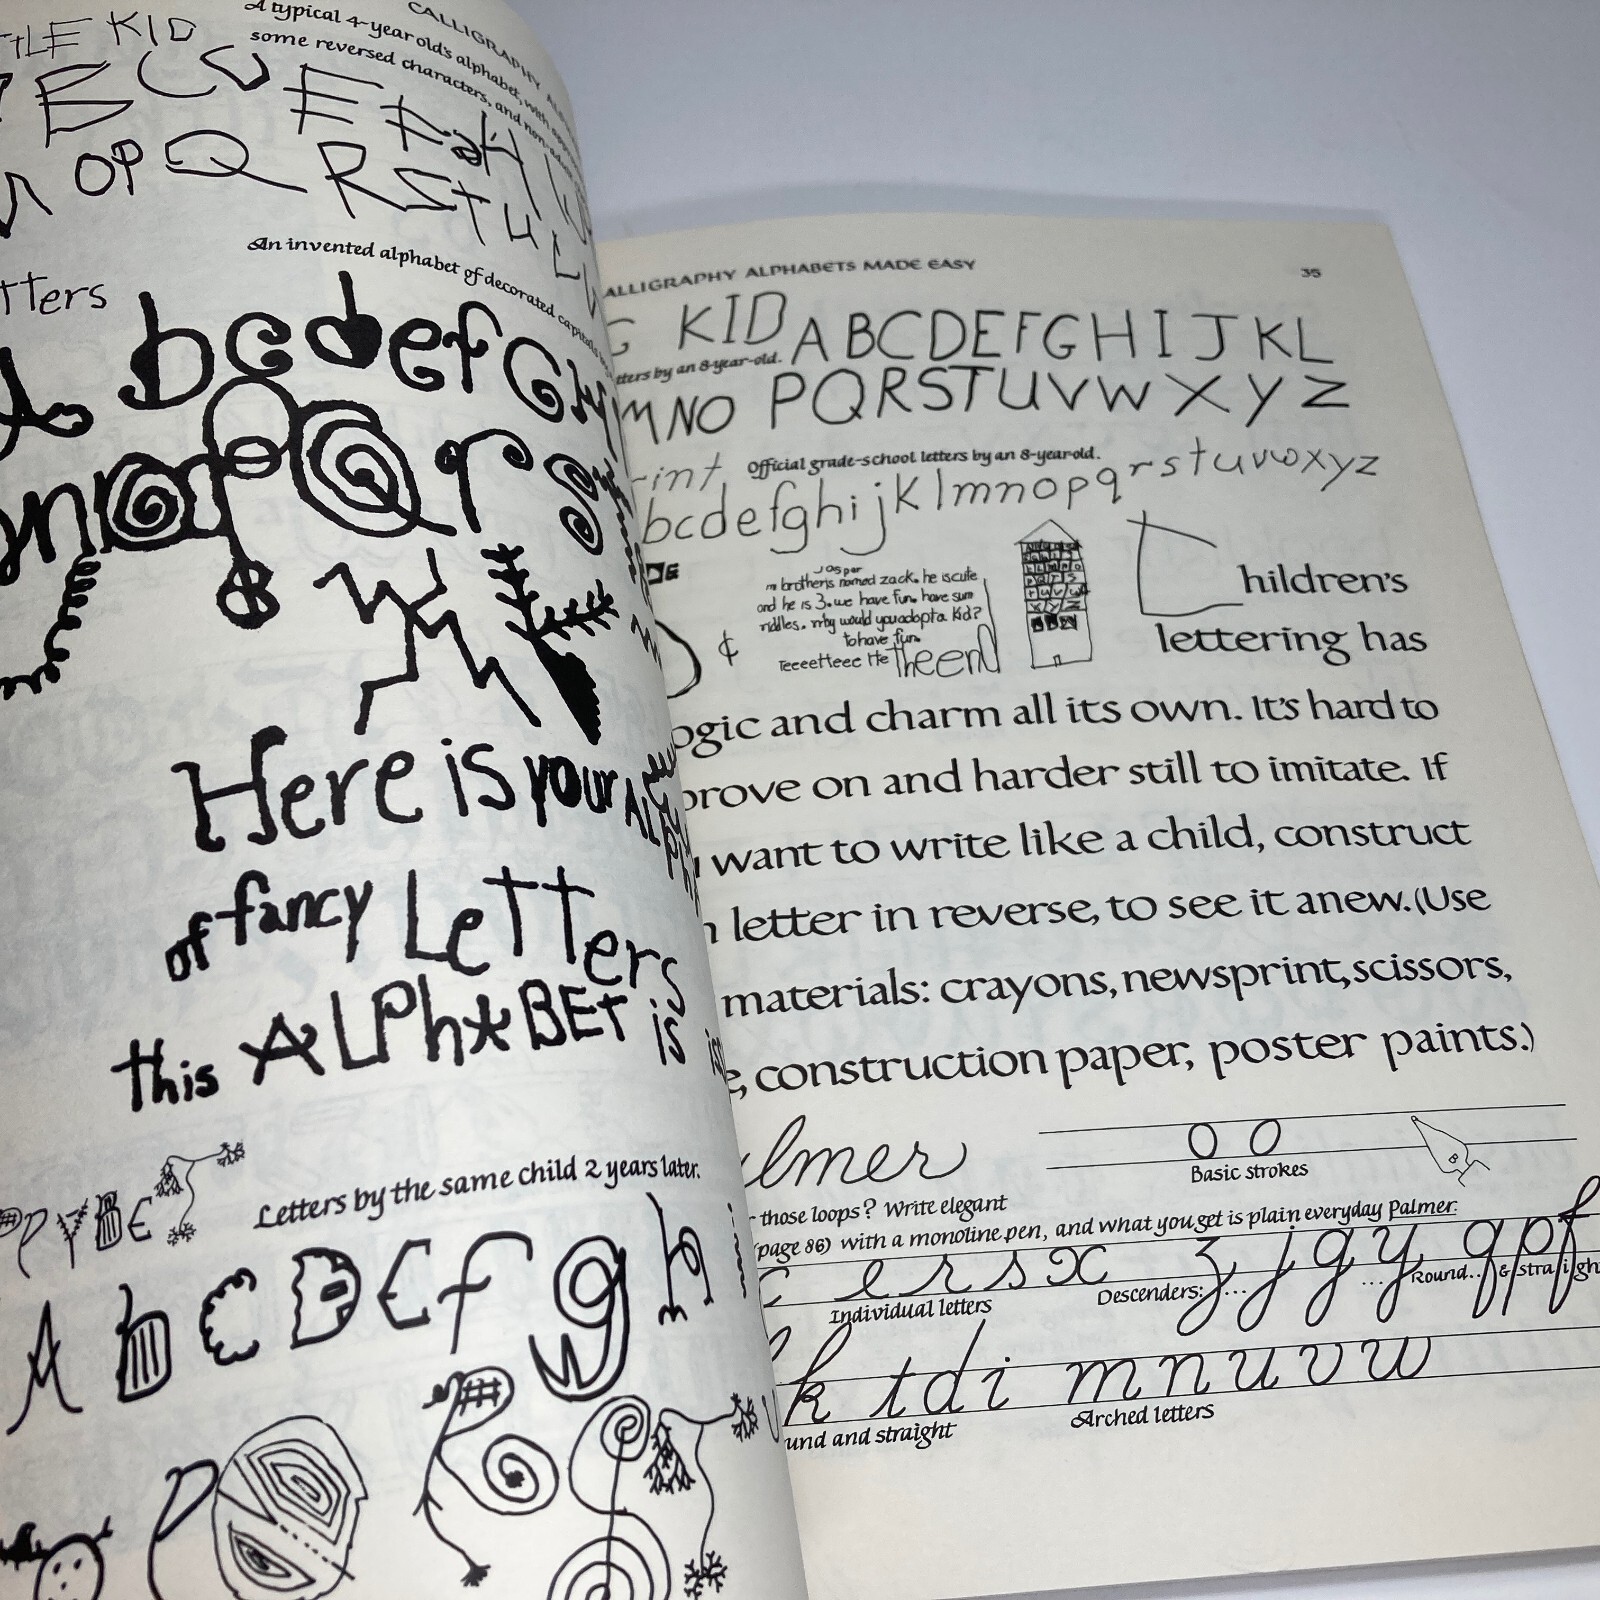 KID
CALLIGRAPHY
A typical 4-year old's alphabet, with
some reversed characters, and
B C E
OP Q R S T U
An invented alphabet of decorated capitals
A b c d e f G
n o P Q r s
Here is your
of fancy LeTTers
this ALPhABET is
Letters by the same child 2 years later.
A b C D E f g h
ALLIGRAPHY ALPHABETS MADE EASY
35
KID A B C D E F G H I J K L
by an 8-year-old.
M N O P Q R S T U V W X Y Z
Official grade-school letters by an 8-year-old.
b c d e f g h i j k l m n o p q r s t u v w x y z
Josper
brother is named zack. he is cute
and he is 3. we have fun. have sum
riddles. why would you adopt a kid?
to have fun.
The end
¢
Children's
lettering has
and charm all its own. It's hard to
on and harder still to imitate. If
want to write like a child, construct
letter in reverse, to see it anew. (Use
materials: crayons, newsprint, scissors,
construction paper, poster paints.)
o o
Basic strokes
those loops? Write elegant
(page 86) with a monoline pen, and what you get is plain everyday Palmer.
c e r s x z j g y q p f
Individual letters
Descenders: ...
... Round ... & straight
k t d i m n u v w
und and straight
Arched letters